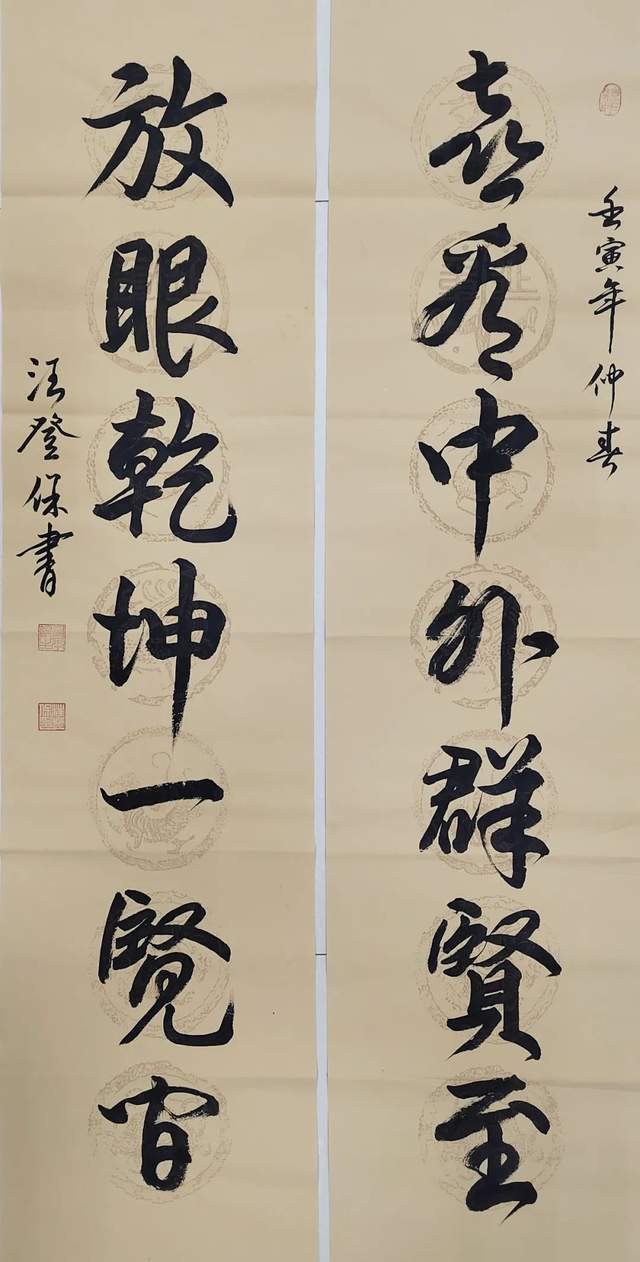 壬寅年仲春
喜看中外群賢至
放眼乾坤一覽間
汪登保書